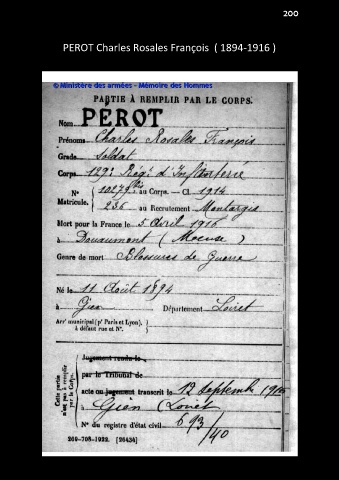 200
PEROT Charles Rosales François ( 1894-1916 )
© Ministère des armées - Mémoire des Hommes
PARTIE À REMPLIR PAR LE CORPS.
Nom PÉROT
Prénoms Charles Rosales François
Grade Soldat
Corps 129e Rég. d'Infanterie
N° 10278bis au Corps. — Cl 1914
Matricule. 236 au Recrutement Montargis
Mort pour la France le 5 Avril 1916
à Douaumont (Meuse)
Genre de mort Blessures de Guerre
Né le 11 Août 1894
à Gien Département Loiret
Arrt municipal (pr Paris et Lyon),
à défaut rue et N°.
Cette partie n'est pas à remplir par le Corps.
Jugement rendu le
par le Tribunal de
acte ou jugement transcrit le 12 septembre 1916
à Gien (Loiret)
N° du registre d'état civil 693/40
269-708-1922. [26434]